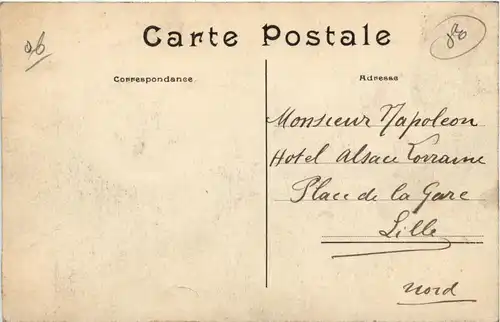 Carte Postale
Correspondance
Adresse
Monsieur Napoleon
Hotel Alsace Lorraine
Place de la Gare
Lille
Nord